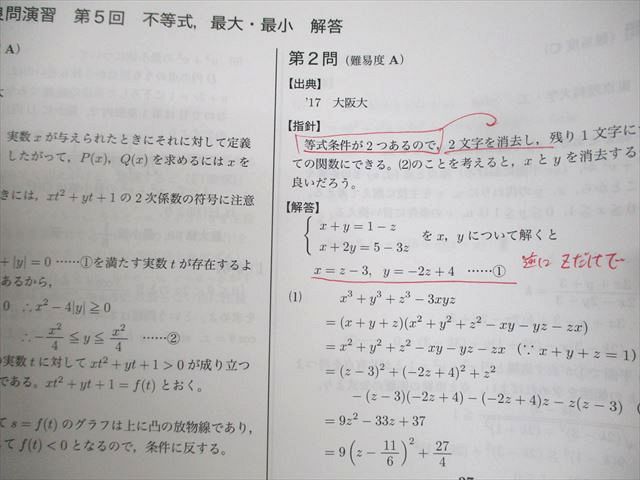 良問演習 第5回 不等式,最大・最小 解答
A)
実数 x が与えられたときにそれに対して定義
したがって,P(x),Q(x) を求めるには x を
きには,xt²+yt+1 の2次係数の符号に注意
+|y|=0 ……①を満たす実数 t が存在するよ
あるから,
0 ∴x²−4|y|≧0
∴−x²/4≦y≦x²/4 ……②
の実数 t に対して xt²+yt+1>0 が成り立つ
である。xt²+yt+1=f(t) とおく。
て s=f(t) のグラフは上に凸の放物線であり,
して f(t)<0 となるので,条件に反する。
第2問 (難易度 A)
【出典】
'17 大阪大
【指針】
等式条件が2つあるので,2文字を消去し,残り1文字に
ての関数にできる。(2)のことを考えると,x と y を消去する
良いだろう。
【解答】
{x+y=1−z
x+2y=5−3z を x,y について解くと
x=z−3, y=−2z+4 ……①
zだけで
(1) x³+y³+z³−3xyz
=(x+y+z)(x²+y²+z²−xy−yz−zx)
=x²+y²+z²−xy−yz−zx (∵x+y+z=1)
=(z−3)²+(−2z+4)²+z²
−(z−3)(−2z+4)−(−2z+4)z−z(z−3) (
=9z²−33z+37
=9(z−11/6)²+27/4